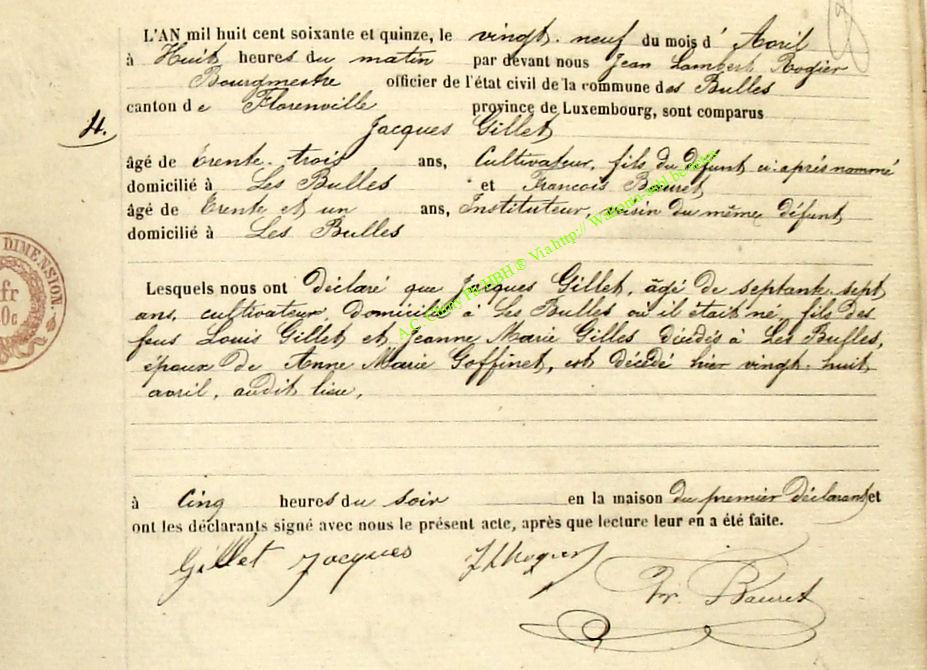 L'AN mil huit cent soixante et quinze, le vingt-neuf du mois d'Avril
à Huit heures du matin par devant nous Jean Lambert Rogier
Bourgmestre officier de l'état civil de la commune des Bulles
canton de Florenville province de Luxembourg, sont comparus
4. Jacques Gillet
âgé de trente-trois ans, Cultivateur, fils du défunt ci-après nommé
domicilié à Les Bulles et François Bauret
âgé de trente et un ans, Instituteur, voisin du même défunt
domicilié à Les Bulles
DIMENSION.
Lesquels nous ont déclaré que Jacques Gillet, âgé de septante-sept
ans, cultivateur, domicilié à Les Bulles où il était né, fils des
feus Louis Gillet et Jeanne Marie Gilles décédés à Les Bulles,
époux de Anne Marie Goffinet, est décédé hier vingt-huit
avril, audit lieu,
à Cinq heures du soir en la maison du premier déclarant et
ont les déclarants signé avec nous le présent acte, après que lecture leur en a été faite.
Gillet Jacques JLRogier
Fr. Bauret